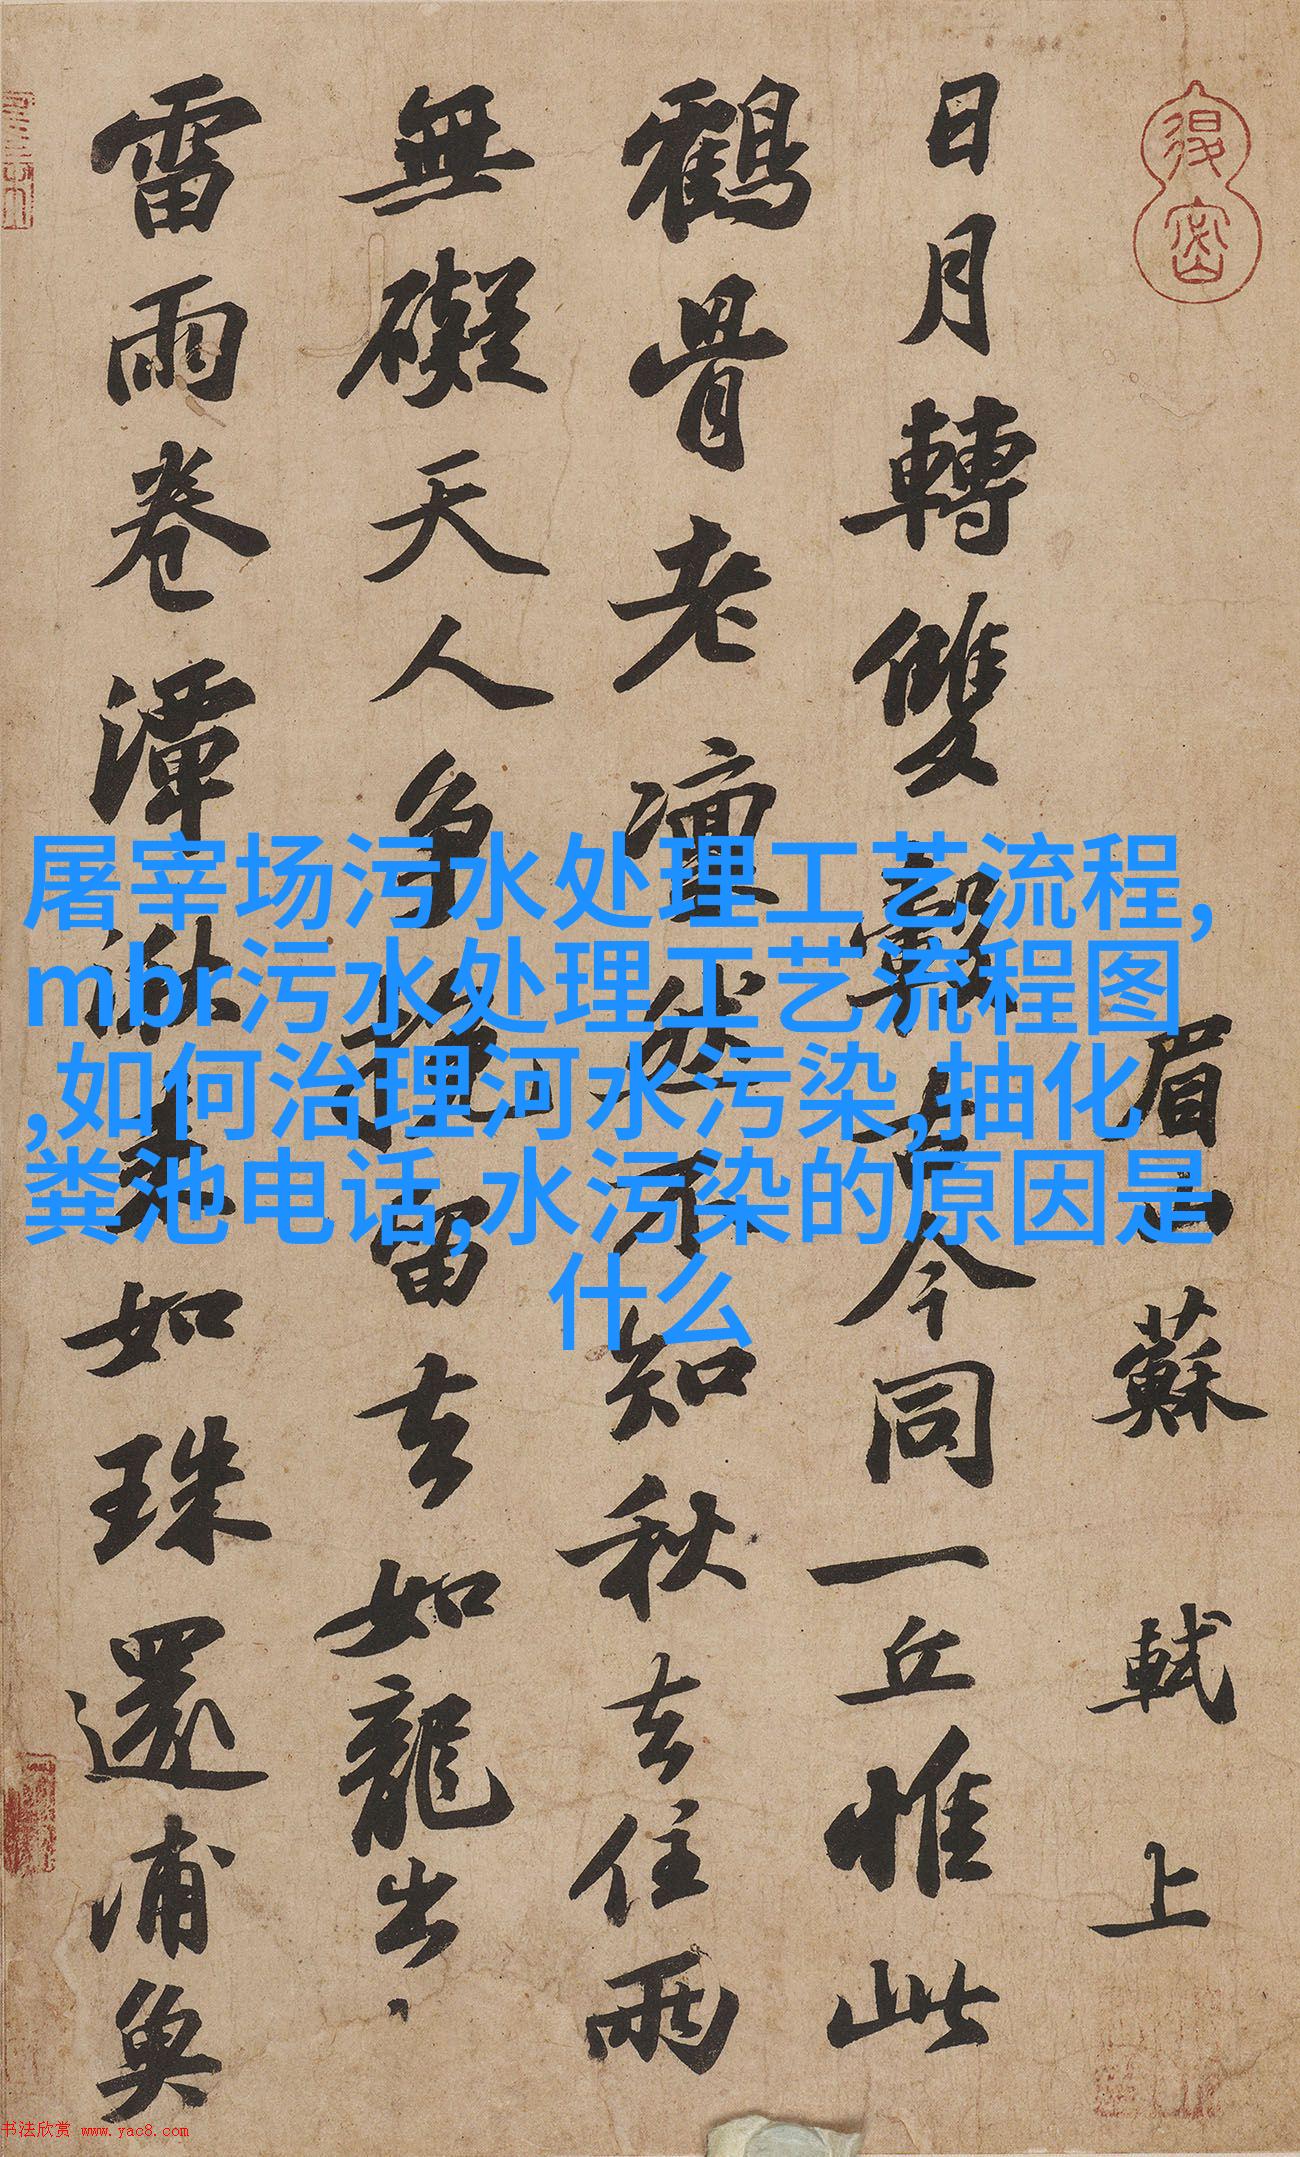 眉山蘇軾上
日月轉雙轂古今同一丘惟此
鶴骨老凜然不知秋去住兩
無礙天人争挽留去如龍出
雷雨卷潭湫来如珠還浦魚
屠宰场污水处理工艺流程,
mbr污水处理工艺流程图
,如何治理河水污染,抽化
粪池电话,水污染的原因是
什么
书法欣赏 www.yac8.com